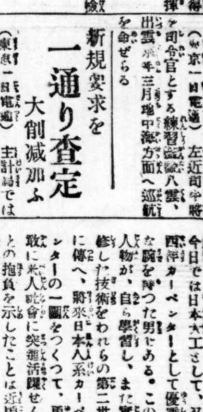 険
（東京一日電通）左近司中將
を司令官とする練習艦八雲、
出雲は來三月地中海方面へ巡航
を命ぜらる
新規要求を
一通り査定
大削減加ふ
（東京一日電通）主計局では
今日では日本大工として、
四洋カーペンターとして優
な腕を持つた男にある。こ
人物が、自ら學習し、また實
修した技術をわれらの第二世
に傳へ、將來日本人系カーペ
ンターの一團をつくつて、更
敢に米人社會に突進活躍せん
との抱負を示したことは近